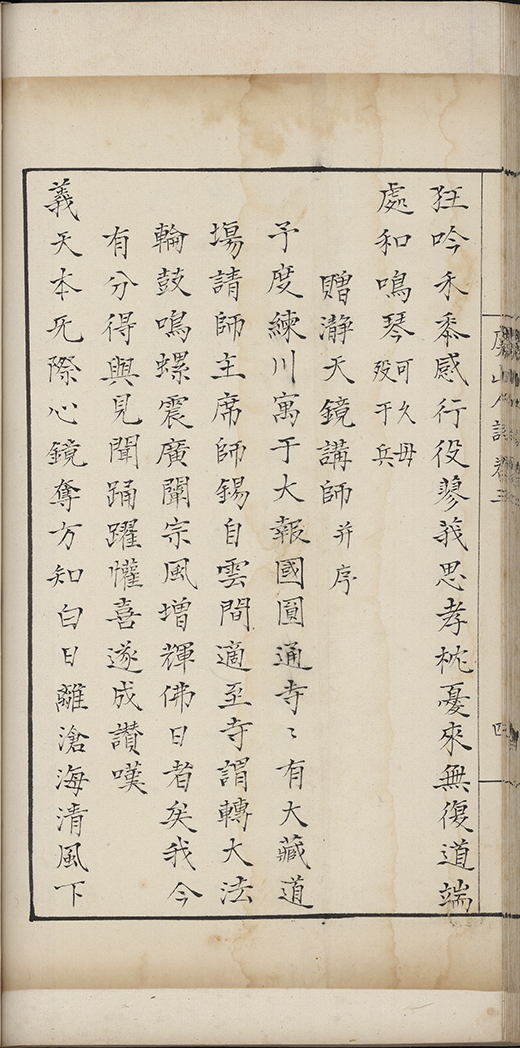 狂吟禾黍感行役蓼莪思孝枕憂來無復道端
處和鳴琴可久毋
殁于兵
贈瀞天鏡講師并序
予度練川寓于大報國圓通寺〻有大藏道
場請師主席師錫自雲間適至寺謂轉大法
輪鼓鳴螺震廣闡宗風增輝佛日者矣我今
有分得與見聞踊躍懽喜遂成讃嘆
義天本旡際心鏡奪方知白日離滄海清風下
山人詩卷三
四